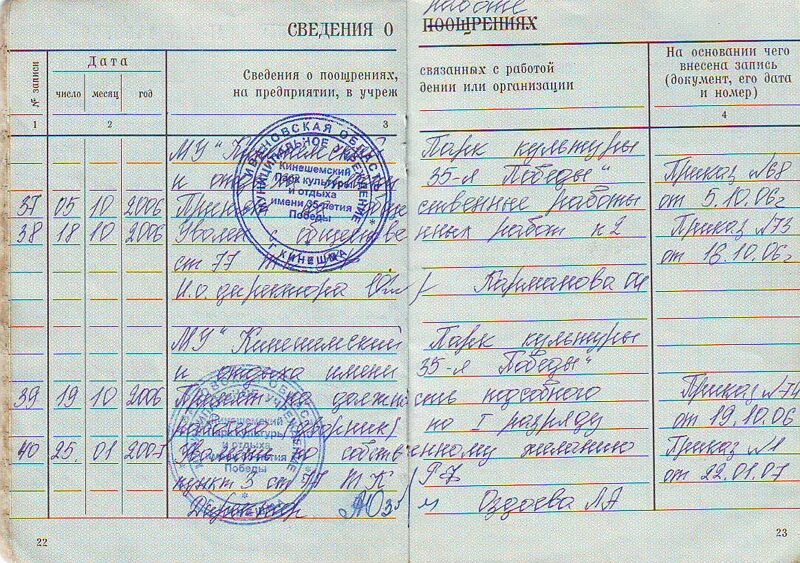 работе
СВЕДЕНИЯ О ПООЩРЕНИЯХ
№ записи
Дата
число месяц год
Сведения о поощрениях, связанных с работой
на предприятии, в учреж дении или организации
На основании чего
внесена запись
(документ, его дата
и номер)
1 2 3 4
МУ "Кинешемский Парк культуры
и отдыха имени 35-я Победы"
37 05 10 2006 Принят на общественные работы Приказ №68
от 5.10.06г
38 18 10 2006 Уволен с общественных работ п.2 Приказ №73
ст 77 ТК РФ от 16.10.06г
И.о. директора Карманова ОЯ
МУ "Кинешемский Парк культуры
и отдыха имени 35-я Победы"
39 19 10 2006 Принят на должность подсобного Приказ №74
рабочего (дворник) по I разряду от 19.10.06
40 25. 01 2007 Уволить по собственному желанию Приказ №1
пункт 3 ст 77 ТК РФ от 22.01.07
Директор Оздоева ЛА
ИВАНОВСКАЯ ОБЛАСТЬ
МУНИЦИПАЛЬНОЕ УЧРЕЖДЕНИЕ
Кинешемский
Парк культуры
и отдыха
имени 35-летия
Победы
г. КИНЕШМА
Кинешемский
Парк культуры
и отдыха
имени 35-летия
Победы
22
23